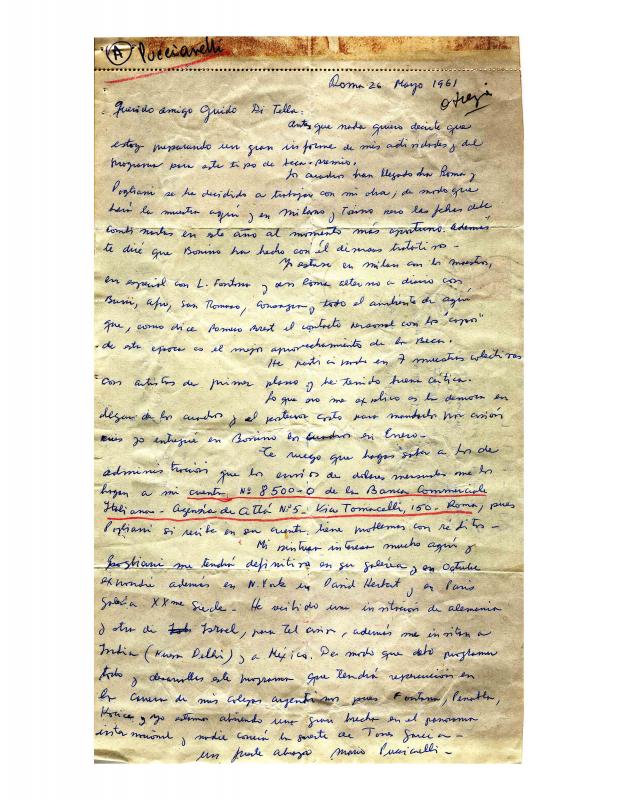 (A) Pucciarelli
Roma 26 Mayo 1961
Querido amigo Guido Di Tella:
Antes que nada quiero decirte que
estoy preparando un gran informe de mis actividades y del
programa para este tipo de beca-premio.
Los cuadros han llegado a Roma y
Pogliani se ha decidido a trabajar con mi obra, de modo que
hará la muestra aquí y en Milano y Torino pero las fechas debe
combinarlas en este año al momento más oportuno. además
te diré que Bonino ha hecho con él diversos tratativas -
Yo estuve en milan con los maestros,
en especial con L. Fontana y en Roma alterno a diario con
Burri, Afro, San Romano, y todo el ambiente de aquí
que, como dice Romero Brest el contacto personal con los "capos"
de esta época es el mejor aprovechamiento de la Beca.
He participado en 7 muestras colectivas
con artistas de primer plano y he tenido buena crítica.
Lo que no me explico es la demora en
llegar de los cuadros y el posterior costo para mandarlos por avión
pues yo entregué en Bonino los cuadros en Enero-
Te ruego que hagas saber a los de
administración que los envíos de dolares mensuales me los
hagan a mi cuenta Nº 8500-0 de la Banca Commerciale
Italiana - Agenzia de Città Nº5. Via Tomacelli, 150. Roma, pues
Pogliani si recibe en su cuenta tiene problemas con réditos-
Mi pintura interesa mucho aquí y
Pogliani me tendrá definitivo en su galería y en Octubre
expondré además en N. York en David Herbert y en Paris
Galería XXme Siecle - He recibido una invitación de alemania
y otra de Israel, para Tel aviv, además me invitan a
India (Nueva Delhi) y a México. De modo que debo programar
todo y desarrollar este programa que tendrá repercusión en
la carrera de mis colegas argentinos pues Fontana, Penalba,
Kosice y yo estamos abriendo una gran brecha en el panorama
internacional y nadie correrá la suerte de Torres García -
un fuerte abrazo Mario Pucciarelli -